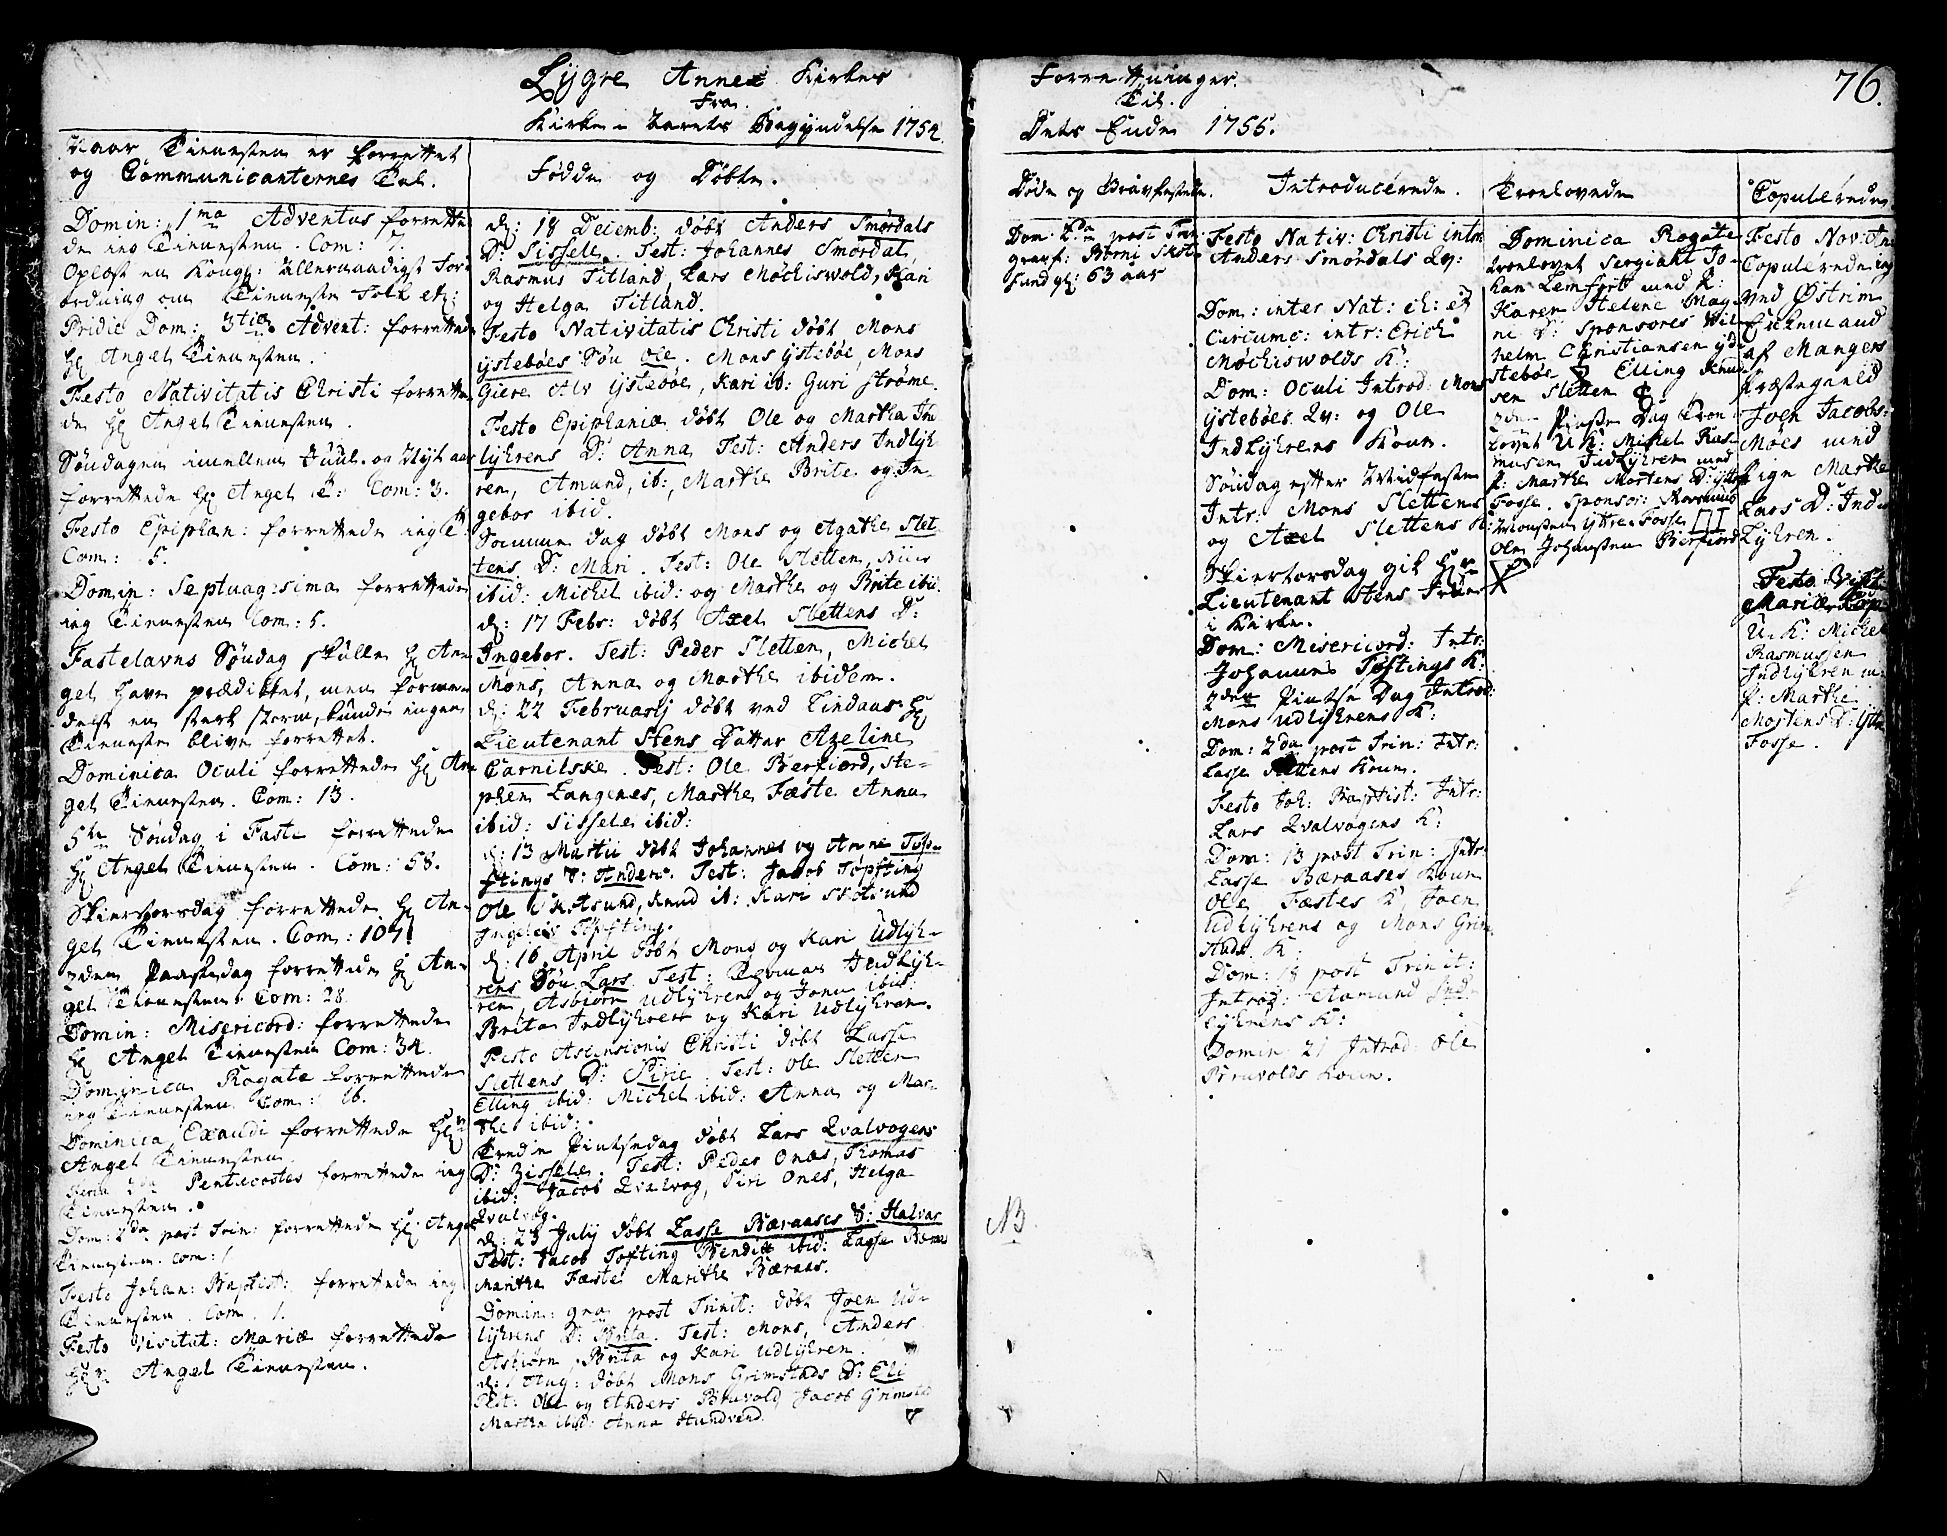 Lygre Annex Kirkes
Fra
Kirke-Aarets Begyndelse 1754
Naar Tienesten er forrettet
og Communicanternes Tal.
Domin: 1ma Adventus forrette
de ieg Tienesten. Com: 7.
Oplæst en Kongl: Allernaadigst For:
ordning om Tieneste Folk etc:
Pridie Dom: 3tiæ Advent: forrettede
Hr Angel Tienesten.
Festo Nativitatis Christi forrette
de Hr Angel Tienesten.
Søndagen imellem Juul og Nyt aar
forrettede Hr Angel T: Com: 3.
Festo Epiphan: forrettede ieg T:
Com: 5.
Domin: Septuag:sima forrettede
ieg Tienesten Com: 5.
Fastelavns Søndag skulle Hr An-
gel have prædiket, men forme-
delst en sterk storm, kunde ingen
Tieneste blive forrettet.
Dominica Oculi forrettede Hr An-
gel Tienesten. Com: 13.
5te Søndag i Faste forrettede
Hr Angel Tienesten. Com: 58.
Skiertorsdag forrettede Hr An-
gel Tienesten. Com: 107.
2den Paaskedag forrettede Hr An-
gel Tienesten. Com: 28.
Domin: Misericord: forrettede
Hr Angel Tienesten Com: 34.
Dominica Rogate forrettede
ieg Tienesten Com: 16.
Dominica Exaudi forrettede Hr
Angel Tienesten.
Feria 2da Pentecostes forrettede ieg
Tienesten.
Dom: 2da post Trin: forrettede Hr Angel
Tienesten. Com: 1
Festo Johan: Baptist: forrettede ieg
Tienesten. Com. 1.
Festo Visitat: Mariæ forrettede
Hr Angel Tienesten.
Fødde og Døbte.
d: 18 Decemb: døbt Anders Smørdals
D: Sissele. Test: Johannes Smørdal,
Rasmus Titland, Lars Møchiswold, Kari
og Helga Titland.
Festo Nativitatis Christi døbt Mons
ystebøes Søn Ole. Mons ystebøe, Mons
Giere Alv ystebøe, Kari ib: Guri Strøme.
Festo Epiphaniæ døbt Ole og Martha In
lykrens D: Anna Test: Anders Indlyk-
ren, Amund, ib:, Marthe Brite og In-
gebor ibid.
Samme dag døbt Mons og Agathe Slet-
tens D: Mari. Test: Ole Sletten,
ibid: Michel ibid: og Marthe og Brite ibid.
d: 17 Febr: døbt Axel Slettens D:
Ingebor. Test: Peder Sletten, Michel
Mons, Anna og Marthe ibidem.
d: 22 Februarij døbt ved Lindaas Hr
Lieutenant Stens Datter Axeline
Carnilske. Test: Ole Berfiord, Ste-
phen Langenes, Marthe Fæste Anna
ibid: Sissele ibid:
d: 13 Martii døbt Johannes og Anne Tøp-
ftings S: Anders. Test: Jacob Tøpfting
Ole Skotsund, Knud ib: Kari Skotsund
Ingebor Tøpfting.
d: 16 April døbt Mons og Kari Udlyk-
rens Søn Lars. Test: Thomas Indlyk-
ren, Asbiørn Udlykren og Jonn ibid:
Brita Indlykren og Kari Udlykren.
Festo Ascensionis Christi døbt Lasse
Slettens D: Sirie. Test: Ole Sletten
Elling ibid: Michel ibid: Anna og Mar-
the ibid:
Tredie Pintsedag døbt Lars Qvalvogens
D: Zissele. Test: Peder Ones, Thomas
ibid: Jacob Qvalvog, Siri Ones, Helga
Qvalvog.
d: 23 July døbt Lasse Bæraases S: Halvar
Test: Jacob Tøfting Bendict ibid: Lasse
Marithe Fæste Marithe Bæraas.
Domin: 9na post Trinit: døbt Joen Ud-
lykrens D: Brita. Test: Mons, Anders
Asbiørn, Brita og Kari Udlykren.
d: 1 Aug: døbt Mons Grimstads D: Eli
Test: Ole og Anders Bruvold Jacob Grimstad
Martha ibid: Anna Hundvend.
Forrettninger.
Til.
Dets Ende 1755.
76.
Døde og Bravfestede.
Dom: 2da post Trin:
gravf: Børni Skot-
sund gl: 63 aar
NB
Introducerede.
Festo Nativ: Christi intr:
Anders Smørdals Qv:
Dom: inter Nat: ch: et
Circumc: intr: Erich
Møchiswolds K:
Dom: Oculi Introd: Mons
ystebøes Qv: og Ole
Indlykrens Kone.
Søndag efter Midfasten
Intr: Mons Slettens
og Axel Slettens K:
Skiertorsdag gik Hr
Lieutenant Stens Frue
i Kirke.
Dom: Misericord: Intr:
Johannes Tøftings K:
2den Pintse Dag Introd:
Mons Udlykrens K:
Dom: 2da post Trin: Intr:
Lasse Slettens Kone.
Festo Joh: Baptist: Intr:
Lars Qvalvogens K:
Dom: 13 post Trin: Intr:
Lasse Bæraases Kone
Ole Fæstes K. Joen
Udlykrens og Mons Grim-
stads K.
Dom: 18 post Trinit:
Introd: Aamund Ind-
lykrens K:
Domin: 21 Introd: Ole
Bruvolds Kone.
Troelovede
Dominica Rogate
troelovet Sergiant Jo-
han Lemfort med P:
Karen Helene Mag-
ne D: Sponsores Wil-
helm Christiansen yd-
stebøe Elling Knud-
sen Sletten
2den Pintse Dag Troe-
lovet U.K: Michel Ras-
musen Indlykren med
P: Marthe Mortens D: ytte
Fosse. Sponsor: Rasmus
Monsen Yttre Fosse
Ole Johansen Berfiord
Copulerede
Festo Nov: An
Copulerede ieg
Und Østrim
Enkemand
af Mangers
Præstegield
Joen Jacobs:
Moes med
Pige Marthe
Lars D: Ind-
Lykren.
Festo Visit
Mariæ Cop:
U. K: Michel
Rasmussen
Indlykren m:
P: Marthe
Mortens D: ytte
Fosse.